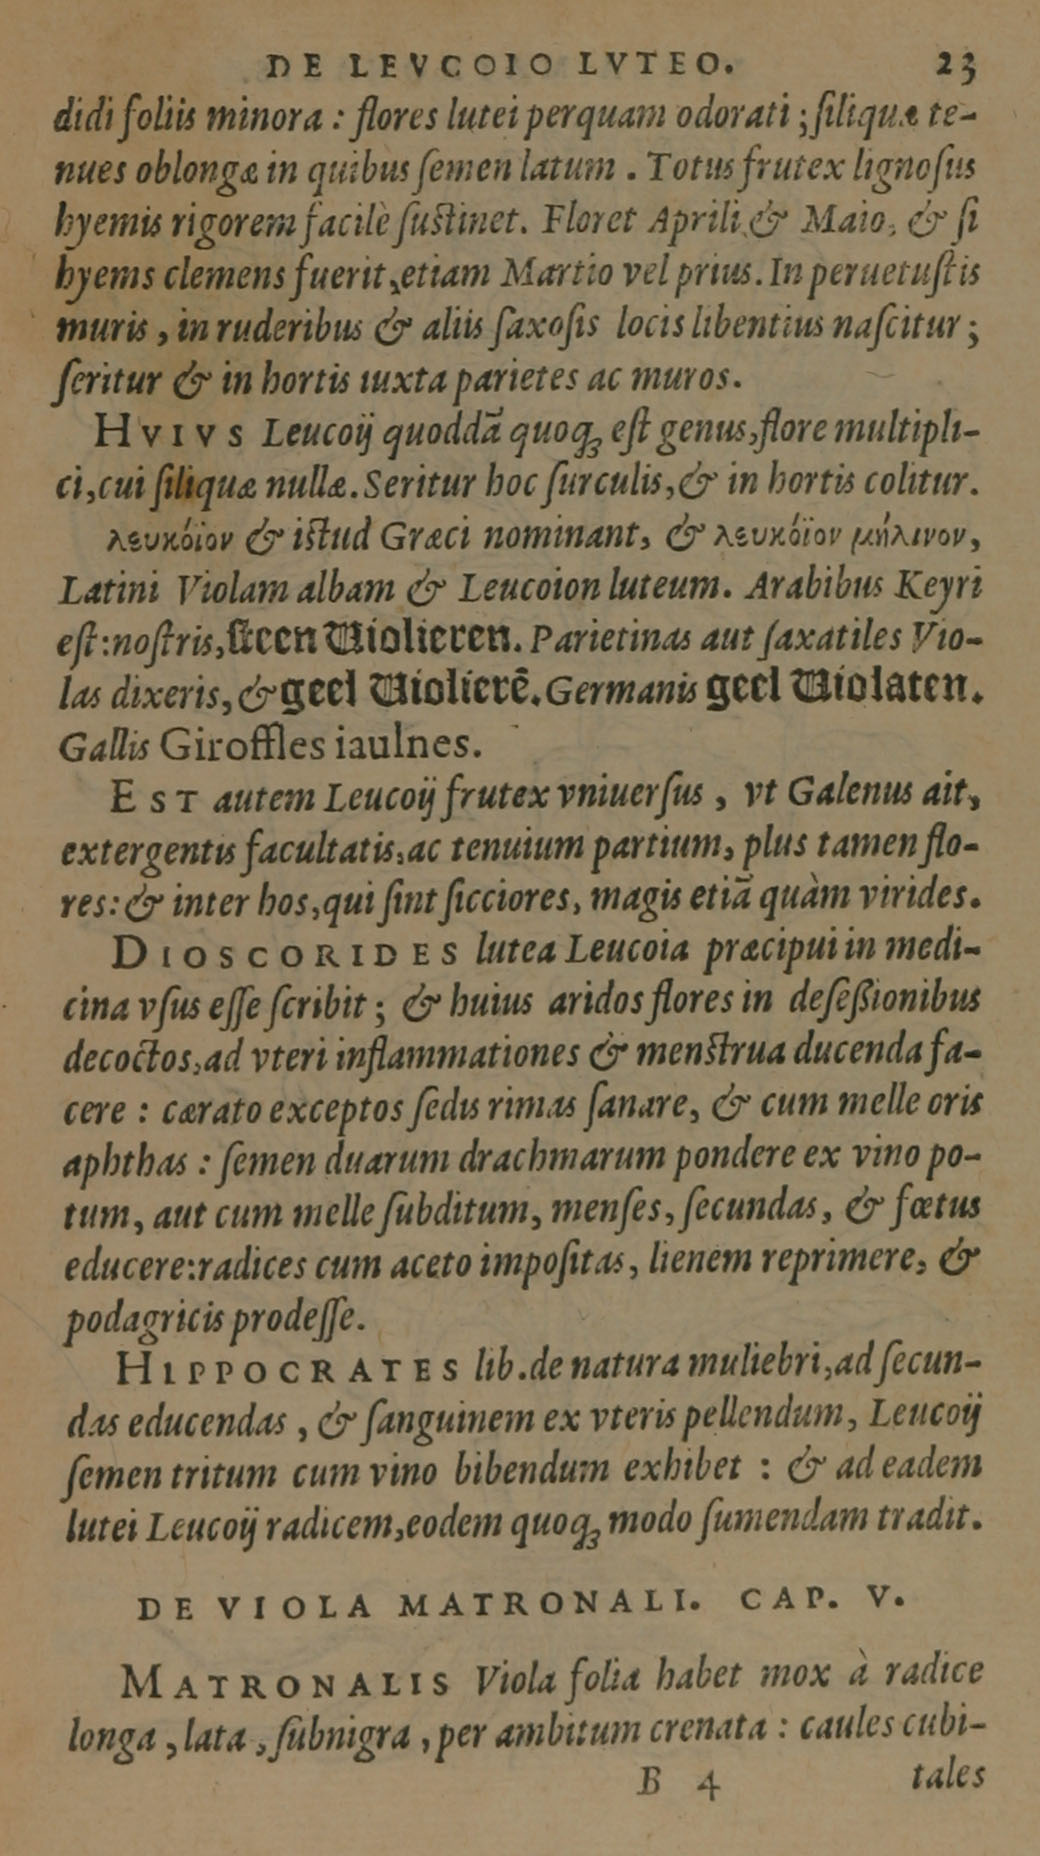 DE LEVCOIO LVTEO. 23
didi foliis minora : flores lutei perquam odorati ; ſiliquæ te-
nues oblongæ in quibus ſemen latum . Totus frutex lignoſus
hyemis rigorem facilè ſuſtinet. Floret Aprili & Maio, & ſi
hyems clemens fuerit, etiam Martio vel prius. In peruetuſtis
muris , in ruderibus & aliis ſaxoſis locis libentius naſcitur ;
ſeritur & in hortis iuxta parietes ac muros.
HVIVS Leucoij quoddã quoqꝫ eſt genus, flore multipli-
ci, cui ſiliquæ nullæ. Seritur hoc ſurculis, & in hortis colitur.
λευκόϊον & iſtud Græci nominant, & λευκόϊον μήλινον,
Latini Violam albam & Leucoion luteum. Arabibus Keyri
eſt: noſtris, ſteen Violieren. Parietinas aut ſaxatiles Vio-
las dixeris, & geel Violierẽ. Germanis geel Violaten.
Gallis Giroffles iaulnes.
EST autem Leucoij frutex vniuerſus , vt Galenus ait,
extergentis facultatis, ac tenuium partium, plus tamen flo-
res: & inter hos, qui ſint ſicciores, magis etiã quàm virides.
DIOSCORIDES lutea Leucoia præcipui in medi-
cina vſus eſſe ſcribit ; & huius aridos flores in deſeßionibus
decoctos, ad vteri inflammationes & menſtrua ducenda fa-
cere : cærato exceptos ſedis rimas ſanare, & cum melle oris
aphthas : ſemen duarum drachmarum pondere ex vino po-
tum, aut cum melle ſubditum, menſes, ſecundas, & fœtus
educere: radices cum aceto impoſitas, lienem reprimere, &
podagricis prodeſſe.
HIPPOCRATES lib. de natura muliebri, ad ſecun-
das educendas , & ſanguinem ex vteris pellendum, Leucoij
ſemen tritum cum vino bibendum exhibet : & ad eadem
lutei Leucoij radicem, eodem quoqꝫ modo ſumendam tradit.
DE VIOLA MATRONALI. CAP. V.
MATRONALIS Viola folia habet mox à radice
longa , lata , ſubnigra , per ambitum crenata : caules cubi-
B 4 tales